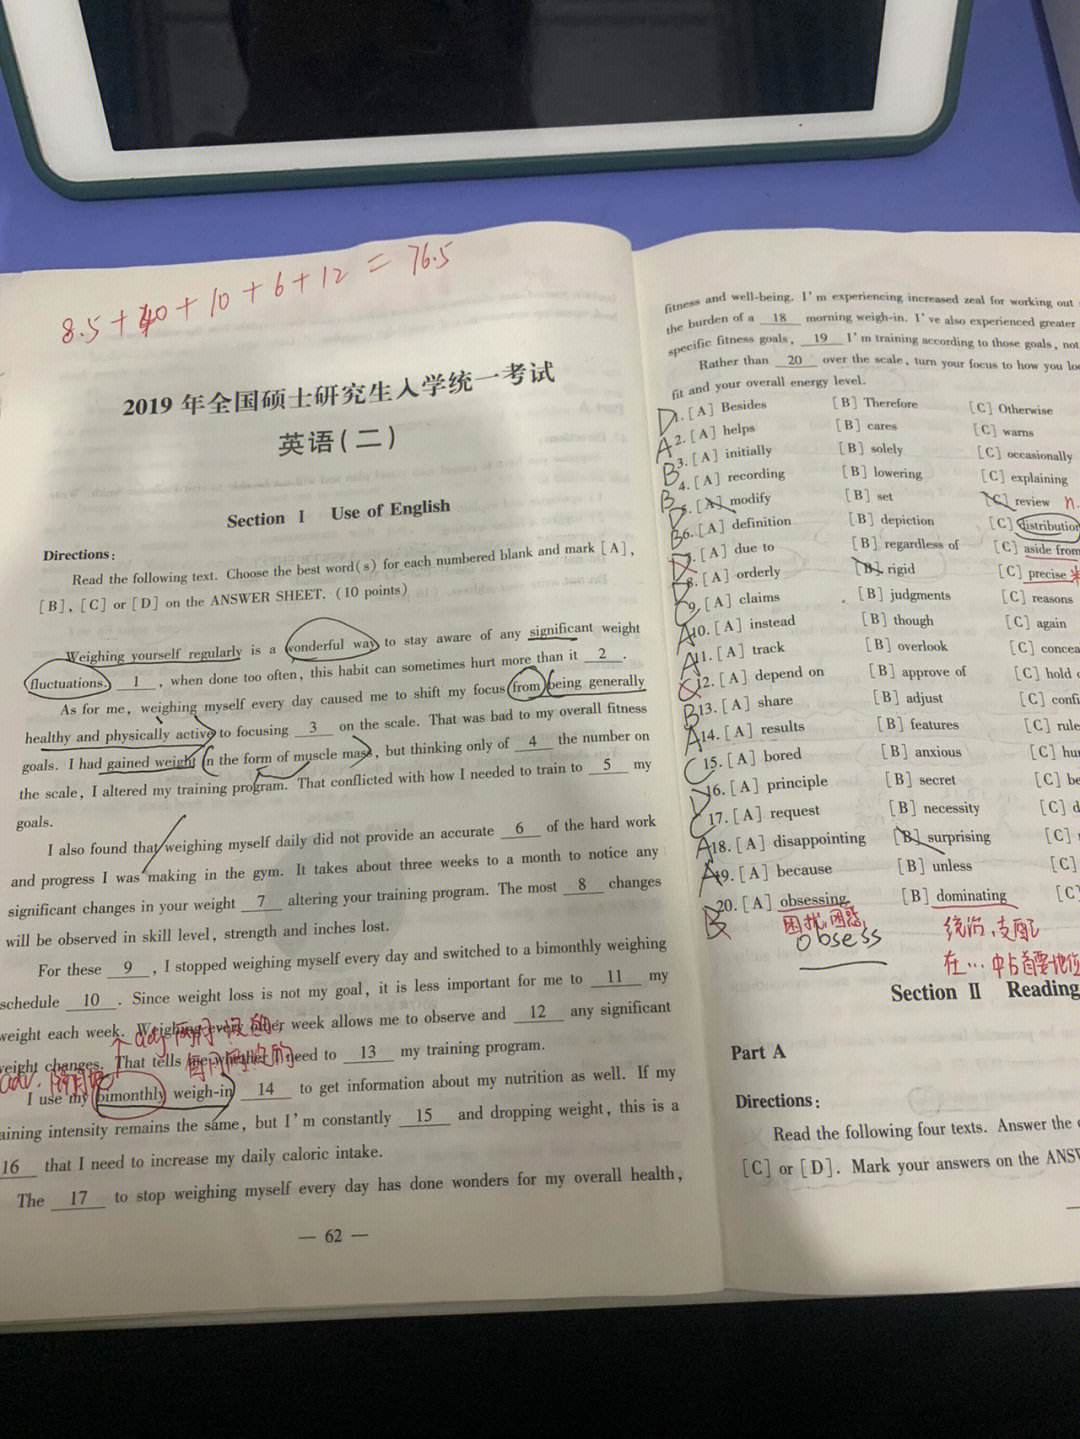 8.5+40+10+6+12=76.5
2019年全国硕士研究生入学统一考试
英语(二)
Section Ⅰ Use of English
Directions:
Read the following text. Choose the best word(s) for each numbered blank and mark [A],
[B], [C] or [D] on the ANSWER SHEET. (10 points)
Weighing yourself regularly is a wonderful way to stay aware of any significant weight
fluctuations. 1 , when done too often, this habit can sometimes hurt more than it 2 .
As for me, weighing myself every day caused me to shift my focus from being generally
healthy and physically active to focusing 3 on the scale. That was bad to my overall fitness
goals. I had gained weight in the form of muscle mass, but thinking only of 4 the number on
the scale, I altered my training program. That conflicted with how I needed to train to 5 my
goals.
I also found that weighing myself daily did not provide an accurate 6 of the hard work
and progress I was making in the gym. It takes about three weeks to a month to notice any
significant changes in your weight 7 altering your training program. The most 8 changes
will be observed in skill level, strength and inches lost.
For these 9 , I stopped weighing myself every day and switched to a bimonthly weighing
schedule 10 . Since weight loss is not my goal, it is less important for me to 11 my
weight each week. Weighing every other week allows me to observe and 12 any significant
weight changes. That tells me whether I need to 13 my training program.
I use my bimonthly weigh-in 14 to get information about my nutrition as well. If my
aining intensity remains the same, but I'm constantly 15 and dropping weight, this is a
16 that I need to increase my daily caloric intake.
The 17 to stop weighing myself every day has done wonders for my overall health,
— 62 —
fitness and well-being. I'm experiencing increased zeal for working out
the burden of a 18 morning weigh-in. I've also experienced greater
specific fitness goals, 19 I'm training according to those goals, not
Rather than 20 over the scale, turn your focus to how you
fit and your overall energy level.
D 1. [A] Besides [B] Therefore [C] Otherwise
A 2. [A] helps [B] cares [C] warns
B 3. [A] initially [B] solely [C] occasionally
B 4. [A] recording [B] lowering [C] explaining
D 5. [A] modify [B] set [C] review n.
B 6. [A] definition [B] depiction [C] distribution
7. [A] due to [B] regardless of [C] aside from
8. [A] orderly [B] rigid [C] precise
C 9. [A] claims [B] judgments [C] reasons
A 10. [A] instead [B] though [C] again
A 11. [A] track [B] overlook [C] concea
12. [A] depend on [B] approve of [C] hold
B 13. [A] share [B] adjust [C] confi
A 14. [A] results [B] features [C] rule
C 15. [A] bored [B] anxious [C] hu
D 16. [A] principle [B] secret [C] be
C 17. [A] request [B] necessity [C] d
A 18. [A] disappointing [B] surprising [C]
A 19. [A] because [B] unless [C]
20. [A] obsessing [B] dominating [C]
困扰,困惑 统治,支配
obsess 在…中占首要地位
Section Ⅱ Reading
Part A
Directions:
Read the following four texts. Answer the
[C] or [D]. Mark your answers on the ANSW